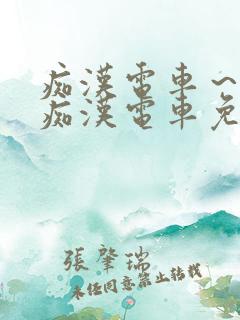 痴漢電車～
痴漢電車免
張肇瑞
未任同意禁止转载